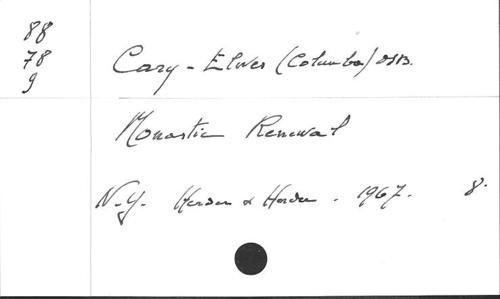 88
78
9
Cary-Elwes (Columba) OSB.
Monastic Renewal
N.Y. Herder & Herder. 1967. 8.